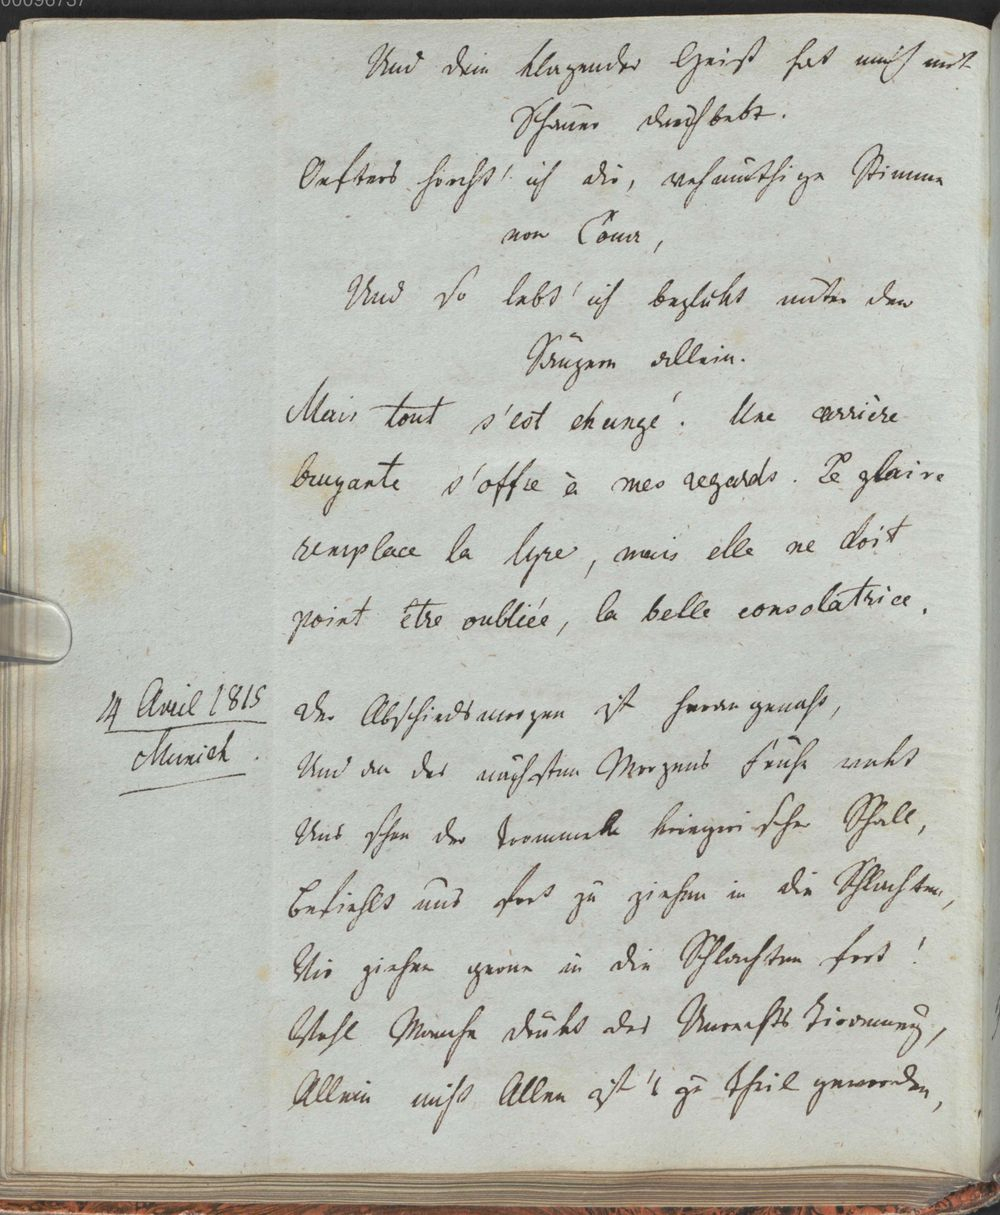 00096737
Und dein klagender Geist hat mich mit
Schauer durchbebt.
Oefters horcht' ich dir, wehmüthige Stimme
von Cona,
Und so lebt' ich beglükt unter den
Sängern allein.
Mais tout s'est changé. Une carrière
bruyante s'offre à mes regards. Le glaive
remplace la lyre, mais elle ne doit
point être oubliée, la belle consolatrice.
14 Avril 1815
Munich.
Der Abschiedsmorgen ist heran genaht,
Und an des nächsten Morgens Frühe wekt
Uns schon der Trommeln kriegrischer Schall,
Befiehlt uns fort zu ziehen in die Schlachten,
Wir ziehen gerne in die Schlachten fort!
Wohl Manche drükt des Unrechts Tirannei,
Allein nicht Allen ist's zu Theil geworden,